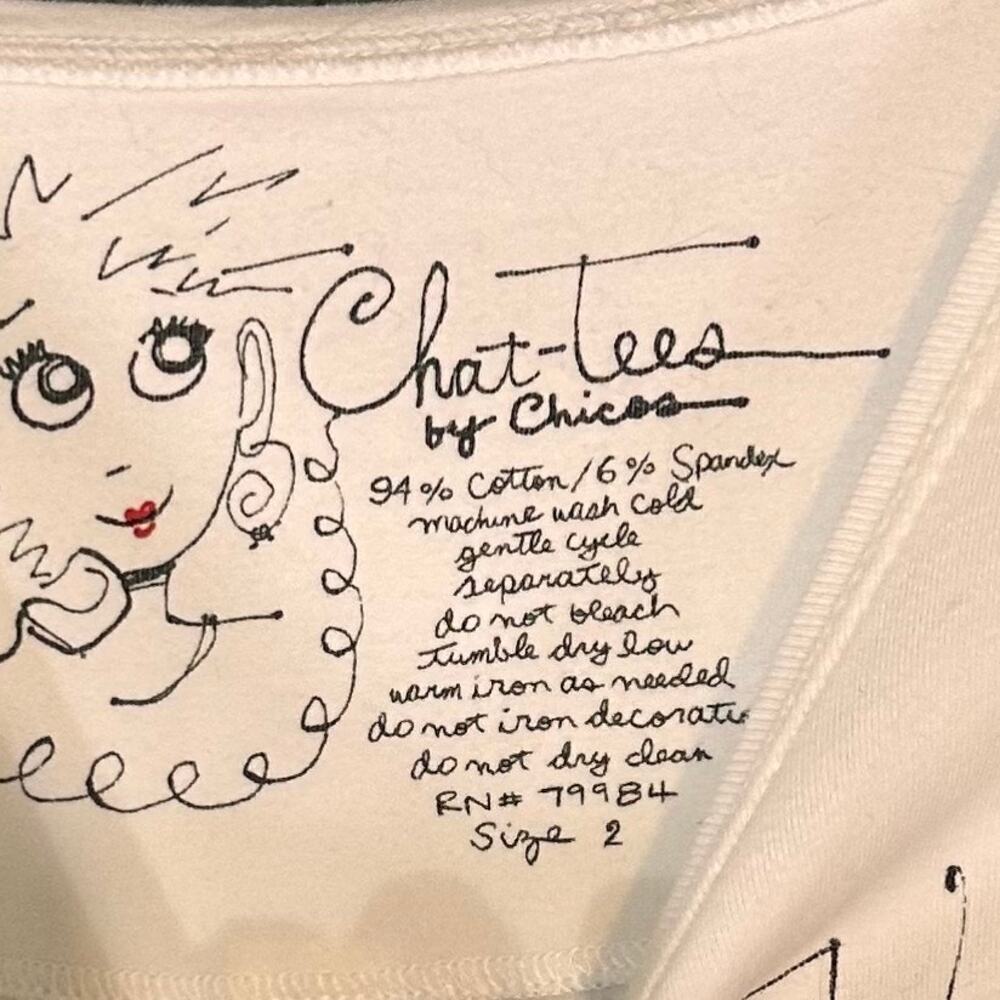 Chat-Tees
by Chicos
94% Cotton/6% Spandex
machine wash cold
gentle cycle
separately
do not bleach
tumble dry low
warm iron as needed
do not iron decorati
do not dry clean
RN# 79984
Size 2